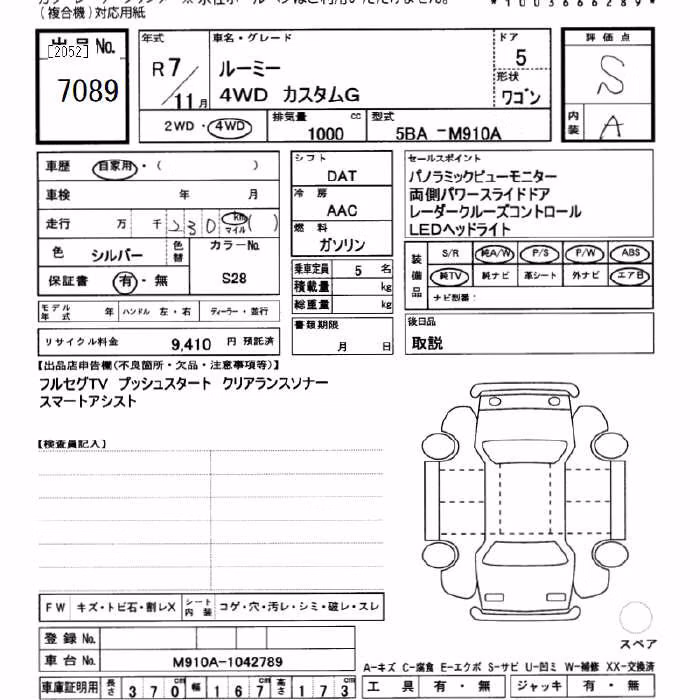 (複合機)対応用紙
*1003666289*
出品No.
[2052]
7089
年式
R7/11月
車名・グレード
ルーミー
4WD カスタムG
ドア
5
形状
ワゴン
評価点
S
内装
A
2WD・4WD
排気量 cc
1000
型式
5BA -M910A
車歴 自家用・( )
車検 年 月
走行 万 千 230 km マイル ( )
色 シルバー
色替
カラーNo.
S28
保証書 有・無
モデル年式 年
ハンドル 左・右
ディーラー・並行
リサイクル料金 9,410 円 預託済
シフト
DAT
冷房
AAC
燃料
ガソリン
乗車定員 5 名
積載量 kg
総重量 kg
書類期限
月 日
セールスポイント
パノラミックビューモニター
両側パワースライドドア
レーダークルーズコントロール
LEDヘッドライト
装備品
S/R 純A/W P/S P/W ABS
純TV 純ナビ 革シート 外ナビ エアB
ナビ型番:
後日品
取説
【出品店申告欄(不良箇所・欠品・注意事項等)】
フルセグTV プッシュスタート クリアランスソナー
スマートアシスト
【検査員記入】
FW キズ・トビ石・割レX
シート内装 コゲ・穴・汚レ・シミ・破レ・スレ
登録No.
車台No. M910A-1042789
車庫証明用 長さ 370cm 幅 167cm 高さ 173cm
スペア
A-キズ C-腐食 E-エクボ S-サビ U-凹ミ W-補修 XX-交換済
工具 有・無
ジャッキ 有・無